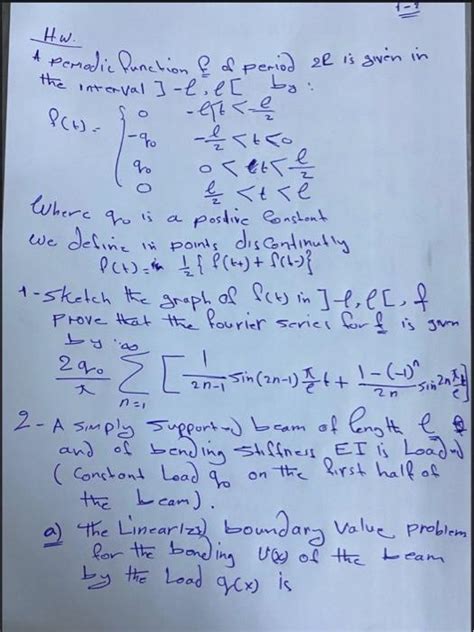 1-1
H.W.
A periodic function f of period 2ℓ is given in
the interval ]-ℓ, ℓ[ by:
f(t) = { 0    -ℓ<t<-ℓ/2
-q₀    -ℓ/2 <t<0
q₀    0<t<ℓ/2
0    ℓ/2 <t<ℓ
Where q₀ is a positive Constant
We define in points discontinutly
f(t)= 1/2 { f(t+) + f(t-)}
1-Sketch the graph of f(t) in ]-ℓ, ℓ[, &
prove that the Fourier series for f is given
by:
2q₀/π ∞∑n=1 [ 1/(2n-1) sin(2n-1) π/ℓ t + (1-(-1)ⁿ)/2n sin 2n π t/ℓ ]
2- A simply supported beam of length ℓ
and of bending stiffness EI is Loaded
( Constant Load q₀ on the first half of
the beam).
a) the Linearized boundary value problem
for the bending U(x) of the beam
by the Load q(x) is